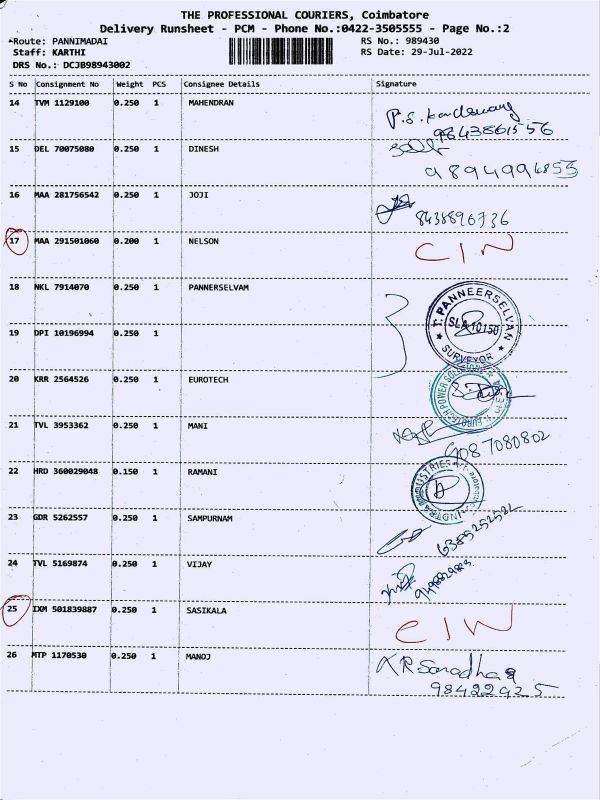 THE PROFESSIONAL COURIERS, Coimbatore
Delivery Runsheet - PCM - Phone No.:0422-3505555 - Page No.:2
Route: PANNIMADAI RS No.: 989430
Staff: KARTHI RS Date: 29-Jul-2022
DRS No.: DCJB98943002
S No Consignment No Weight PCS Consignee Details Signature
14 TVM 1129100 0.250 1 MAHENDRAN
9843861556
15 DEL 70075080 0.250 1 DINESH
9894994853
16 MAA 281756542 0.250 1 JOJI
8438896736
17 MAA 291501060 0.200 1 NELSON CIN
18 NKL 7914070 0.250 1 PANNERSELVAM
T. PANNEERSELVAN
SLA 10150
SURVEYOR
19 DPI 10196994 0.250 1
20 KRR 2564526 0.250 1 EUROTECH
21 TVL 3953362 0.250 1 MANI
9087080802
22 HRD 360029048 0.150 1 RAMANI
23 GDR 5262557 0.250 1 SAMPURNAM
24 TVL 5169874 0.250 1 VIJAY
25 IXM 501839887 0.250 1 SASIKALA CIN
26 MTP 1170530 0.250 1 MANOJ
984229925